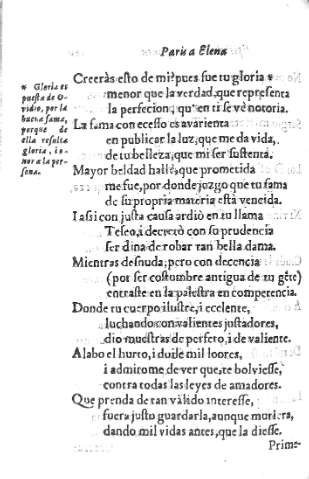 Paris a Elena
* Gloria es
puesta de O-
vidio, por la
buena fama,
porque de
ella resulta
gloria, i o-
nor a la per-
sona.
Creeràs esto de mi? pues fue tu gloria *
menor que la verdad, que representa
la perfecion, qu'en ti se vè notoria.
La fama con ecesso es avarienta
en publicar la luz, que me da vida,
de tu belleza, que mi ser sustenta.
Mayor beldad hallè, que prometida
me fue, por donde juzgo que tu fama
de su propria materia està vencida.
I asi con justa causa ardiò en tu llama
Teseo, i decretò con su prudencia
ser dina de robar tan bella dama.
Mientras desnuda, pero con decencia
(por ser costumbre antigua de tu gẽte)
entraste en la palestra en competencia.
Donde tu cuerpo ilustre, i ecelente,
luchando con valientes justadores,
dio muestras de perfeto, i de valiente.
Alabo el hurto, i doile mil loores,
i admirome de ver que, te bolviesse,
contra todas las leyes de amadores.
Que prenda de tan vàlido interesse,
fuera justo guardarla, aunque muriera,
dando mil vidas antes, que la diesse.
Prime-